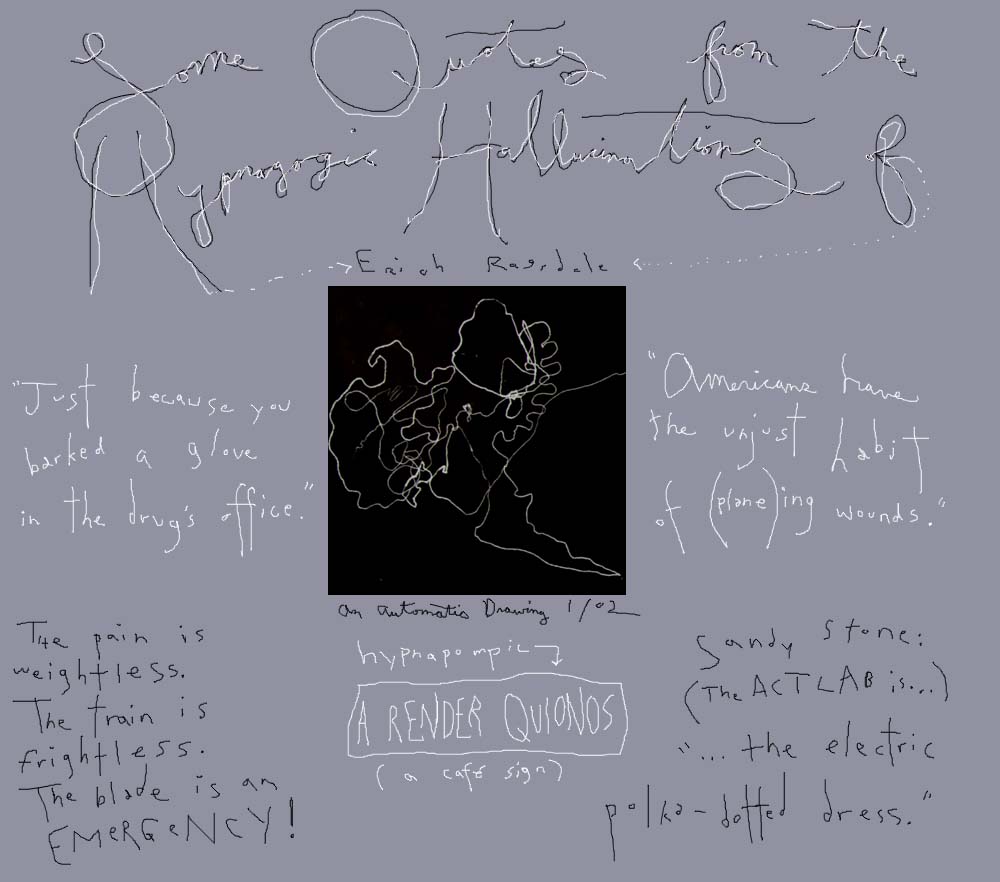 Some Quotes from the
Hypnagogic Hallucinations of
Erich Ragsdale
"Just because you
barked a glove
in the drug's office."
"Americans have
the unjust habit
of (plane)ing wounds."
an automatic Drawing 1/02
The pain is
weightless.
The train is
frightless.
The blade is an
EMERGENCY!
hypnapompic
A RENDER QUIONOS
(a café sign)
Sandy Stone:
(The ACTLAB is...)
"... the electric
polka-dotted dress."